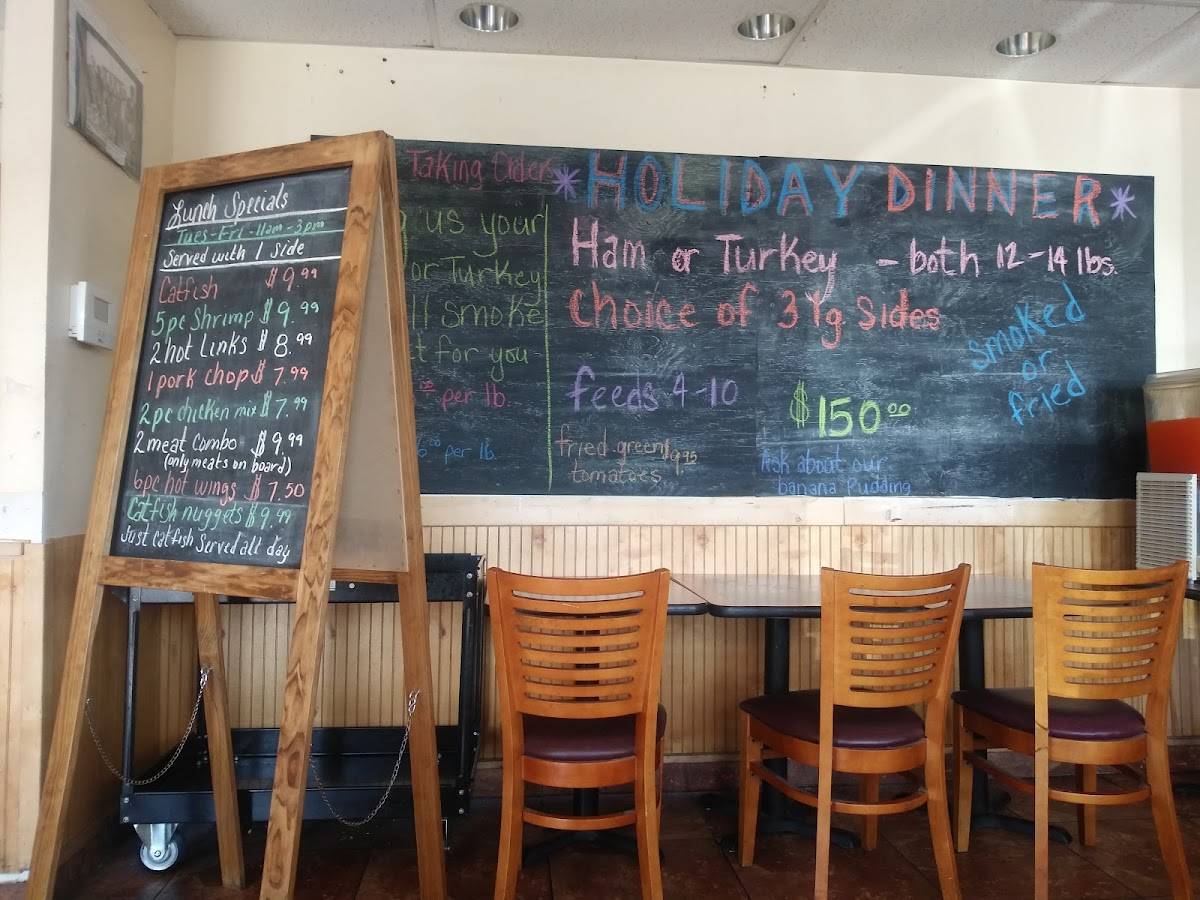 Lunch Specials
Tues-Fri-11am-3pm
Served with 1 side
Catfish $9.99
5pc Shrimp $9.99
2 hot Links $8.99
1 pork chop $7.99
2pc chicken mix $7.99
2 meat combo $9.99
(only meats on board)
6pc hot wings $7.50
Catfish nuggets $9.99
Just Catfish Served all day
Taking Order
us your
or Turkey
smoke
for you
per lb.
per lb.
*HOLIDAY DINNER*
Ham or Turkey - both 12-14 lbs.
Choice of 3 lg. Sides
smoked
or
fried
feeds 4-10
$150.00
fried green
tomatoes 9.95
Ask about our
banana Pudding